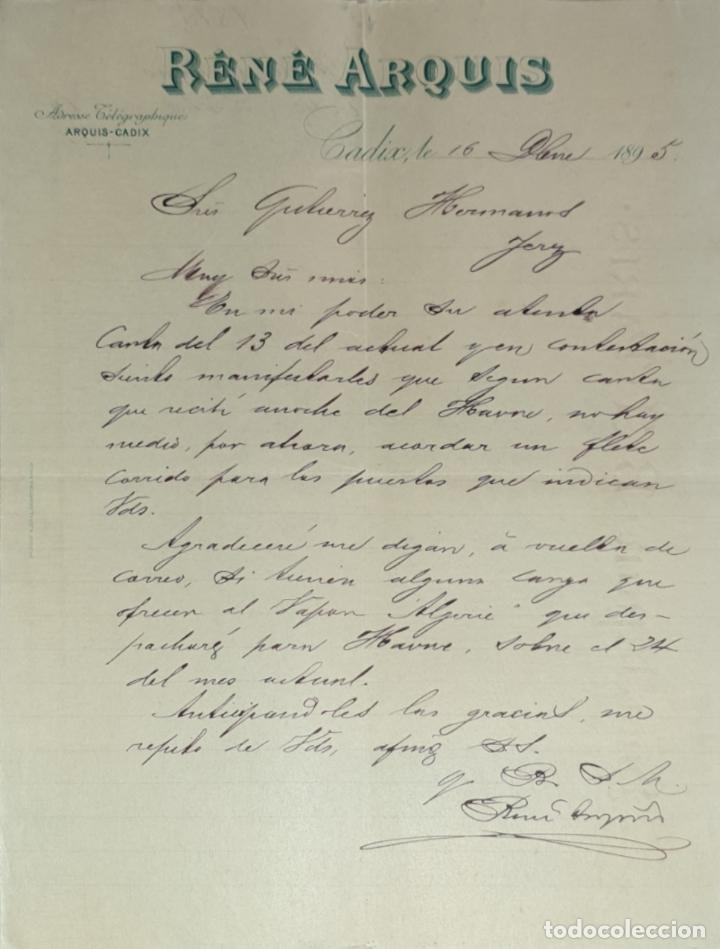 RÉNÉ ARQUIS
Adresse Télégraphique:
ARQUIS-CADIX
Cadix, le 16 Dbre 1895.
Srés Gutierrez Hermanos
Jerez
Muy Srés mios:
En mi poder su atenta
Carta del 13 del actual y en contestación
siento manifestarles que segun carta
que recibí anoche del Havre, no hay
medio, por ahora, acordar un flete
corrido para los puertos que indican
Vds.
Agradeceré me digan, á vuelta de
correo, si tienen alguna carga que
ofrecer al Vapor "Algerie" que des-
pacharé para Havre, sobre el 24
del mes actual.
Anticipandoles las gracias, me
repito de Vds, afmo S.S.
q B. S. M.
René Arquis
todocoleccion